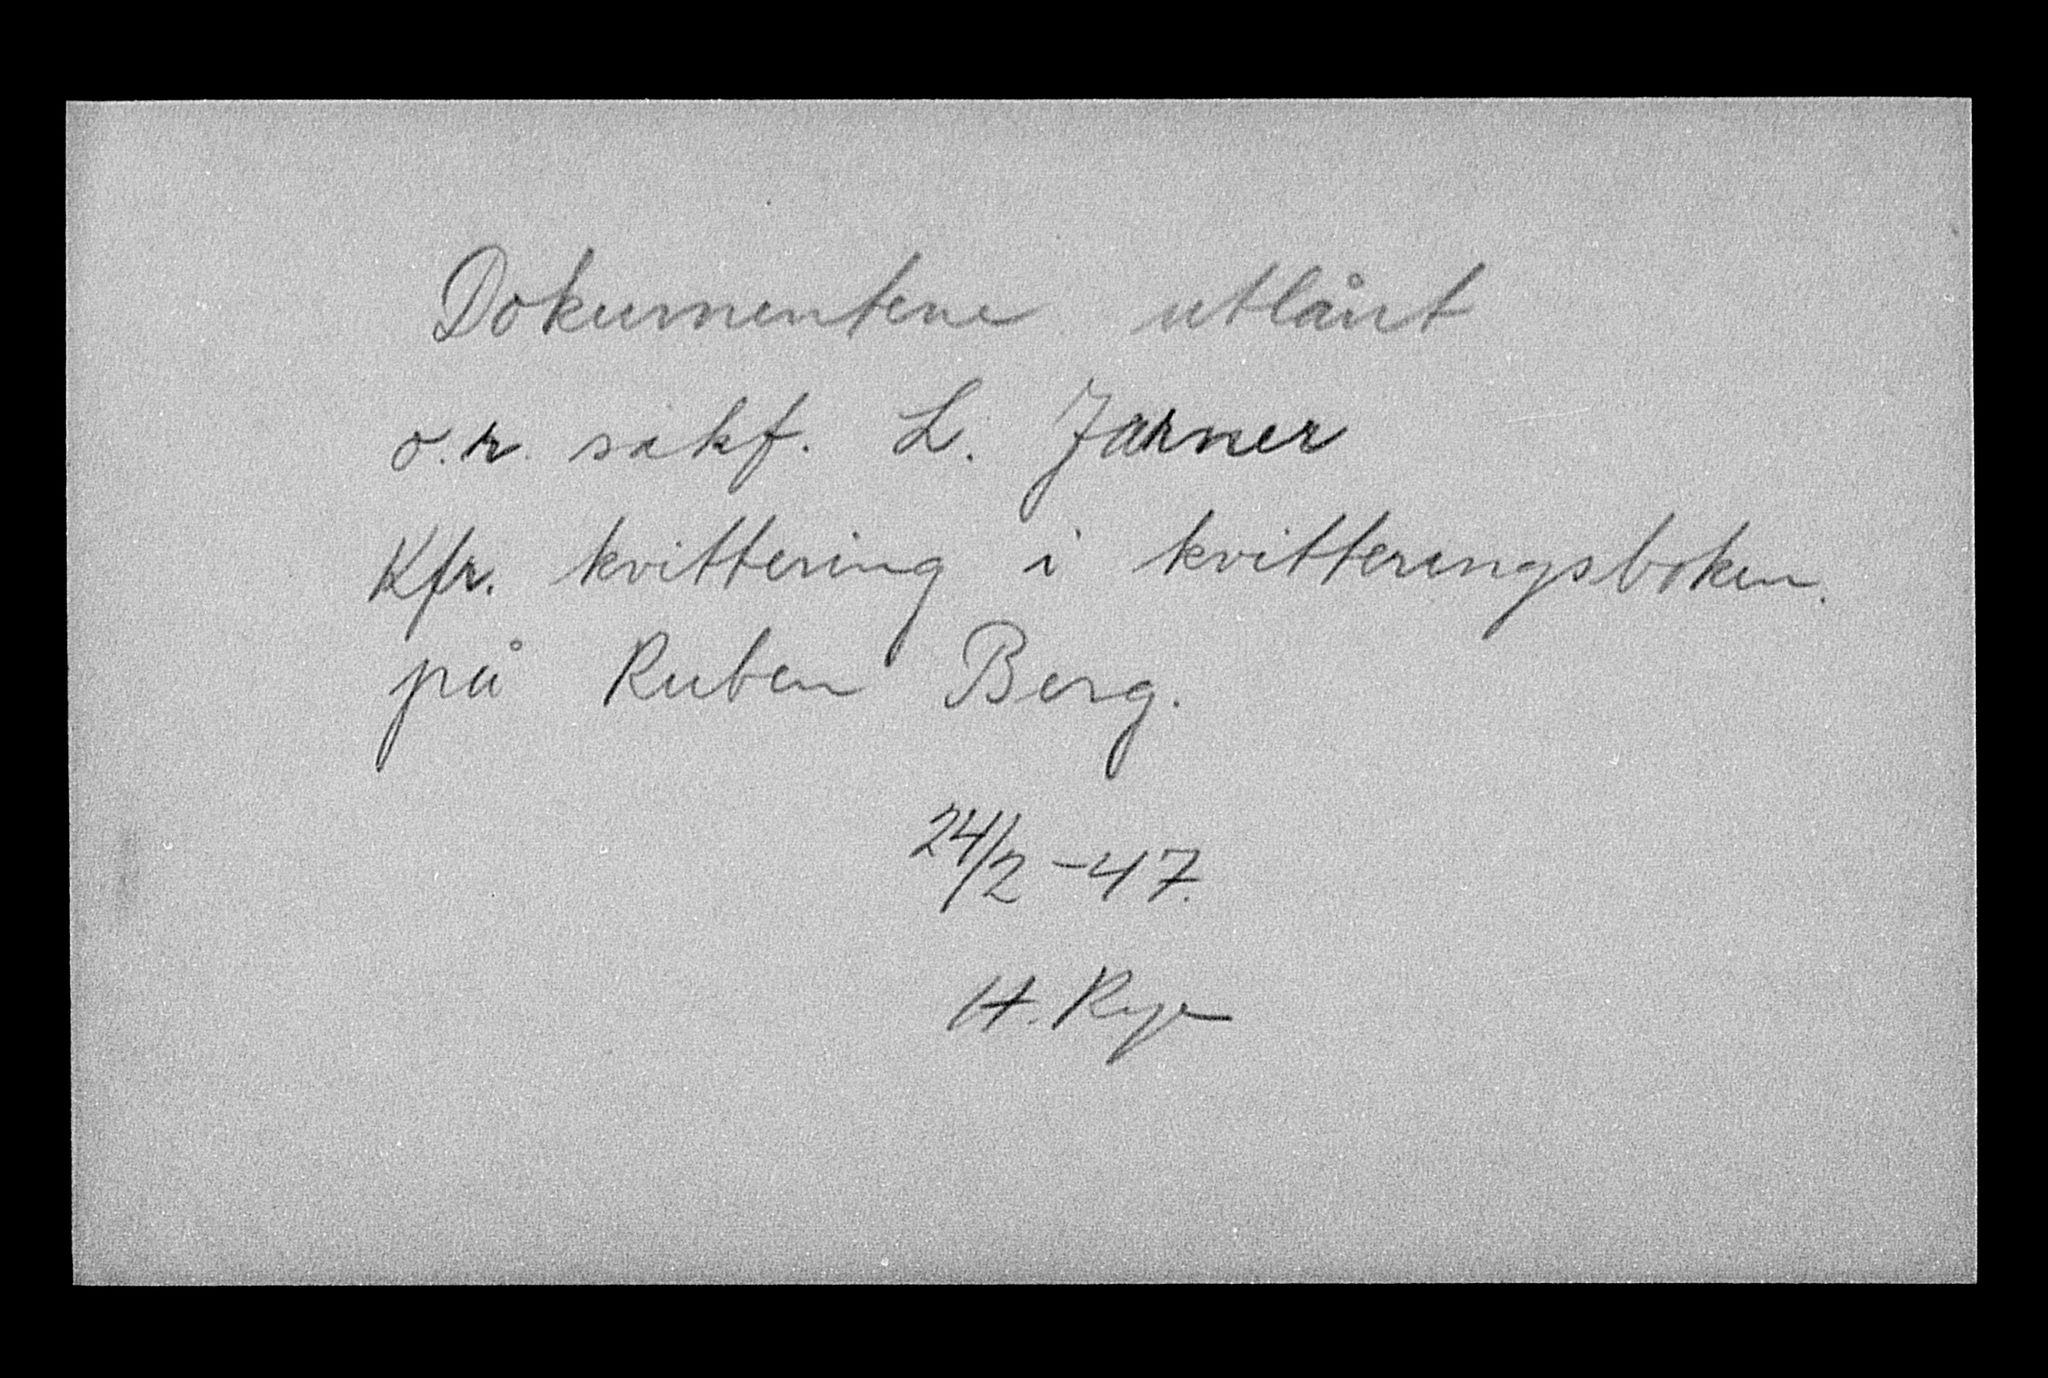 Dokumentene utlånt
o.r. sakf. L. Jarner
Kfr. kvittering i kvitteringsboken.
på Ruben Berg.
24/2 -47.
H. Rye